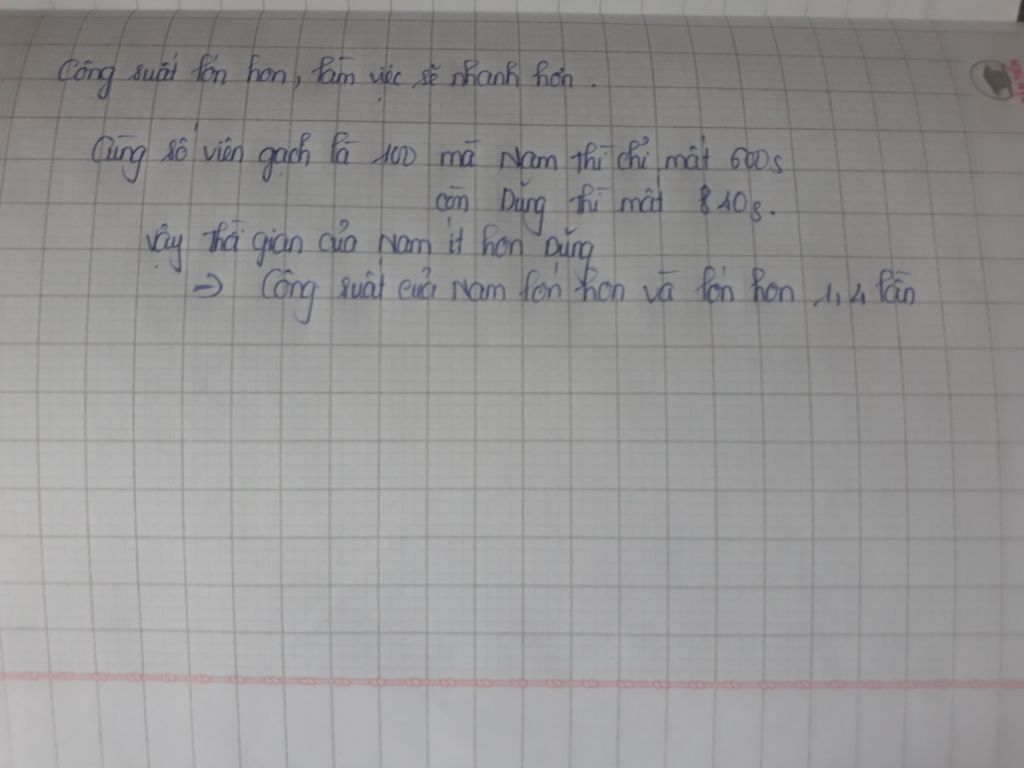 Công suất lớn hơn, làm việc sẽ nhanh hơn.
Cùng số viên gạch là 100 mà Nam thì chỉ mất 600s
còn Dũng thì mất 810s.
Vậy thời gian của Nam ít hơn Dũng
=> Công suất của Nam lớn hơn và lớn hơn 1,4 lần